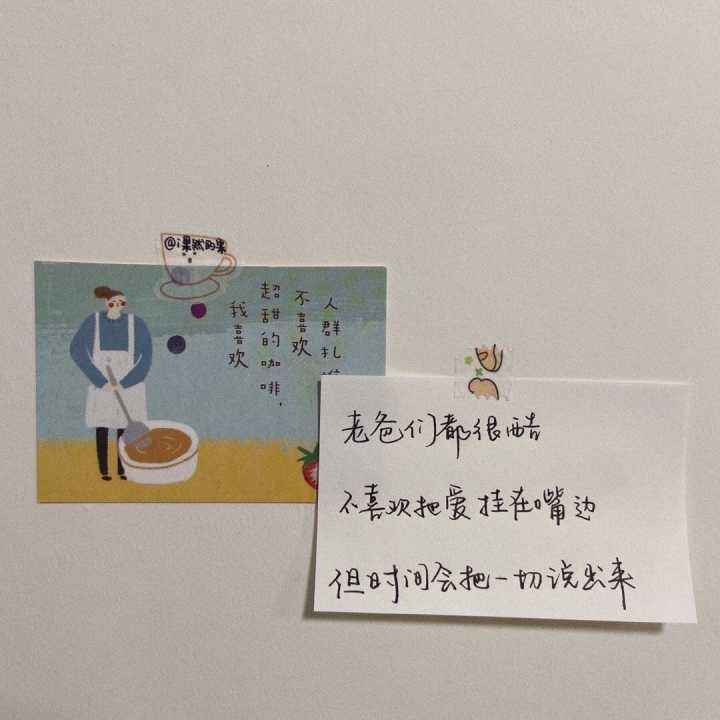 @果然的果
我喜欢
超甜的咖啡，
不喜欢
人群扎
老爸们都很酷
不喜欢把爱挂在嘴边
但时间会把一切说出来